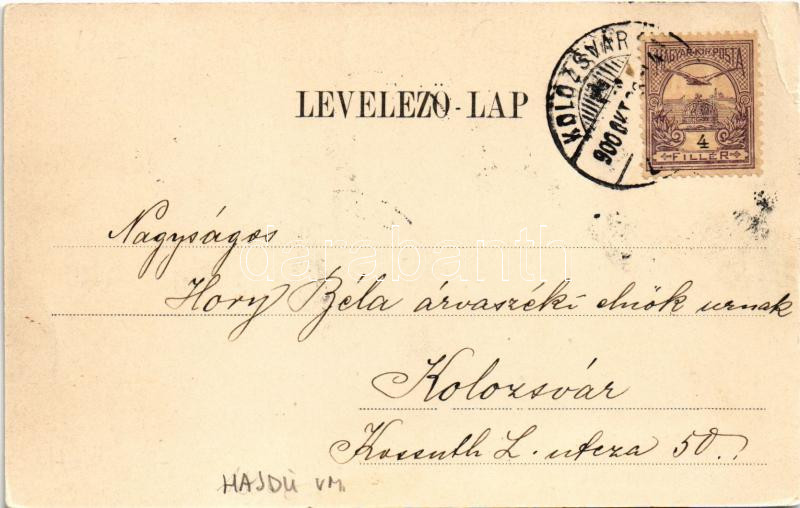 KOLOZSVÁR
900 OKT
MAGYAR KIR. POSTA
4
FILLÉR
LEVELEZŐ-LAP
Nagyságos
darabanth
Hory Béla árvaszéki elnök urnak
Kolozsvár
Kossuth L. utcza 50.
HAJDÚ VM.